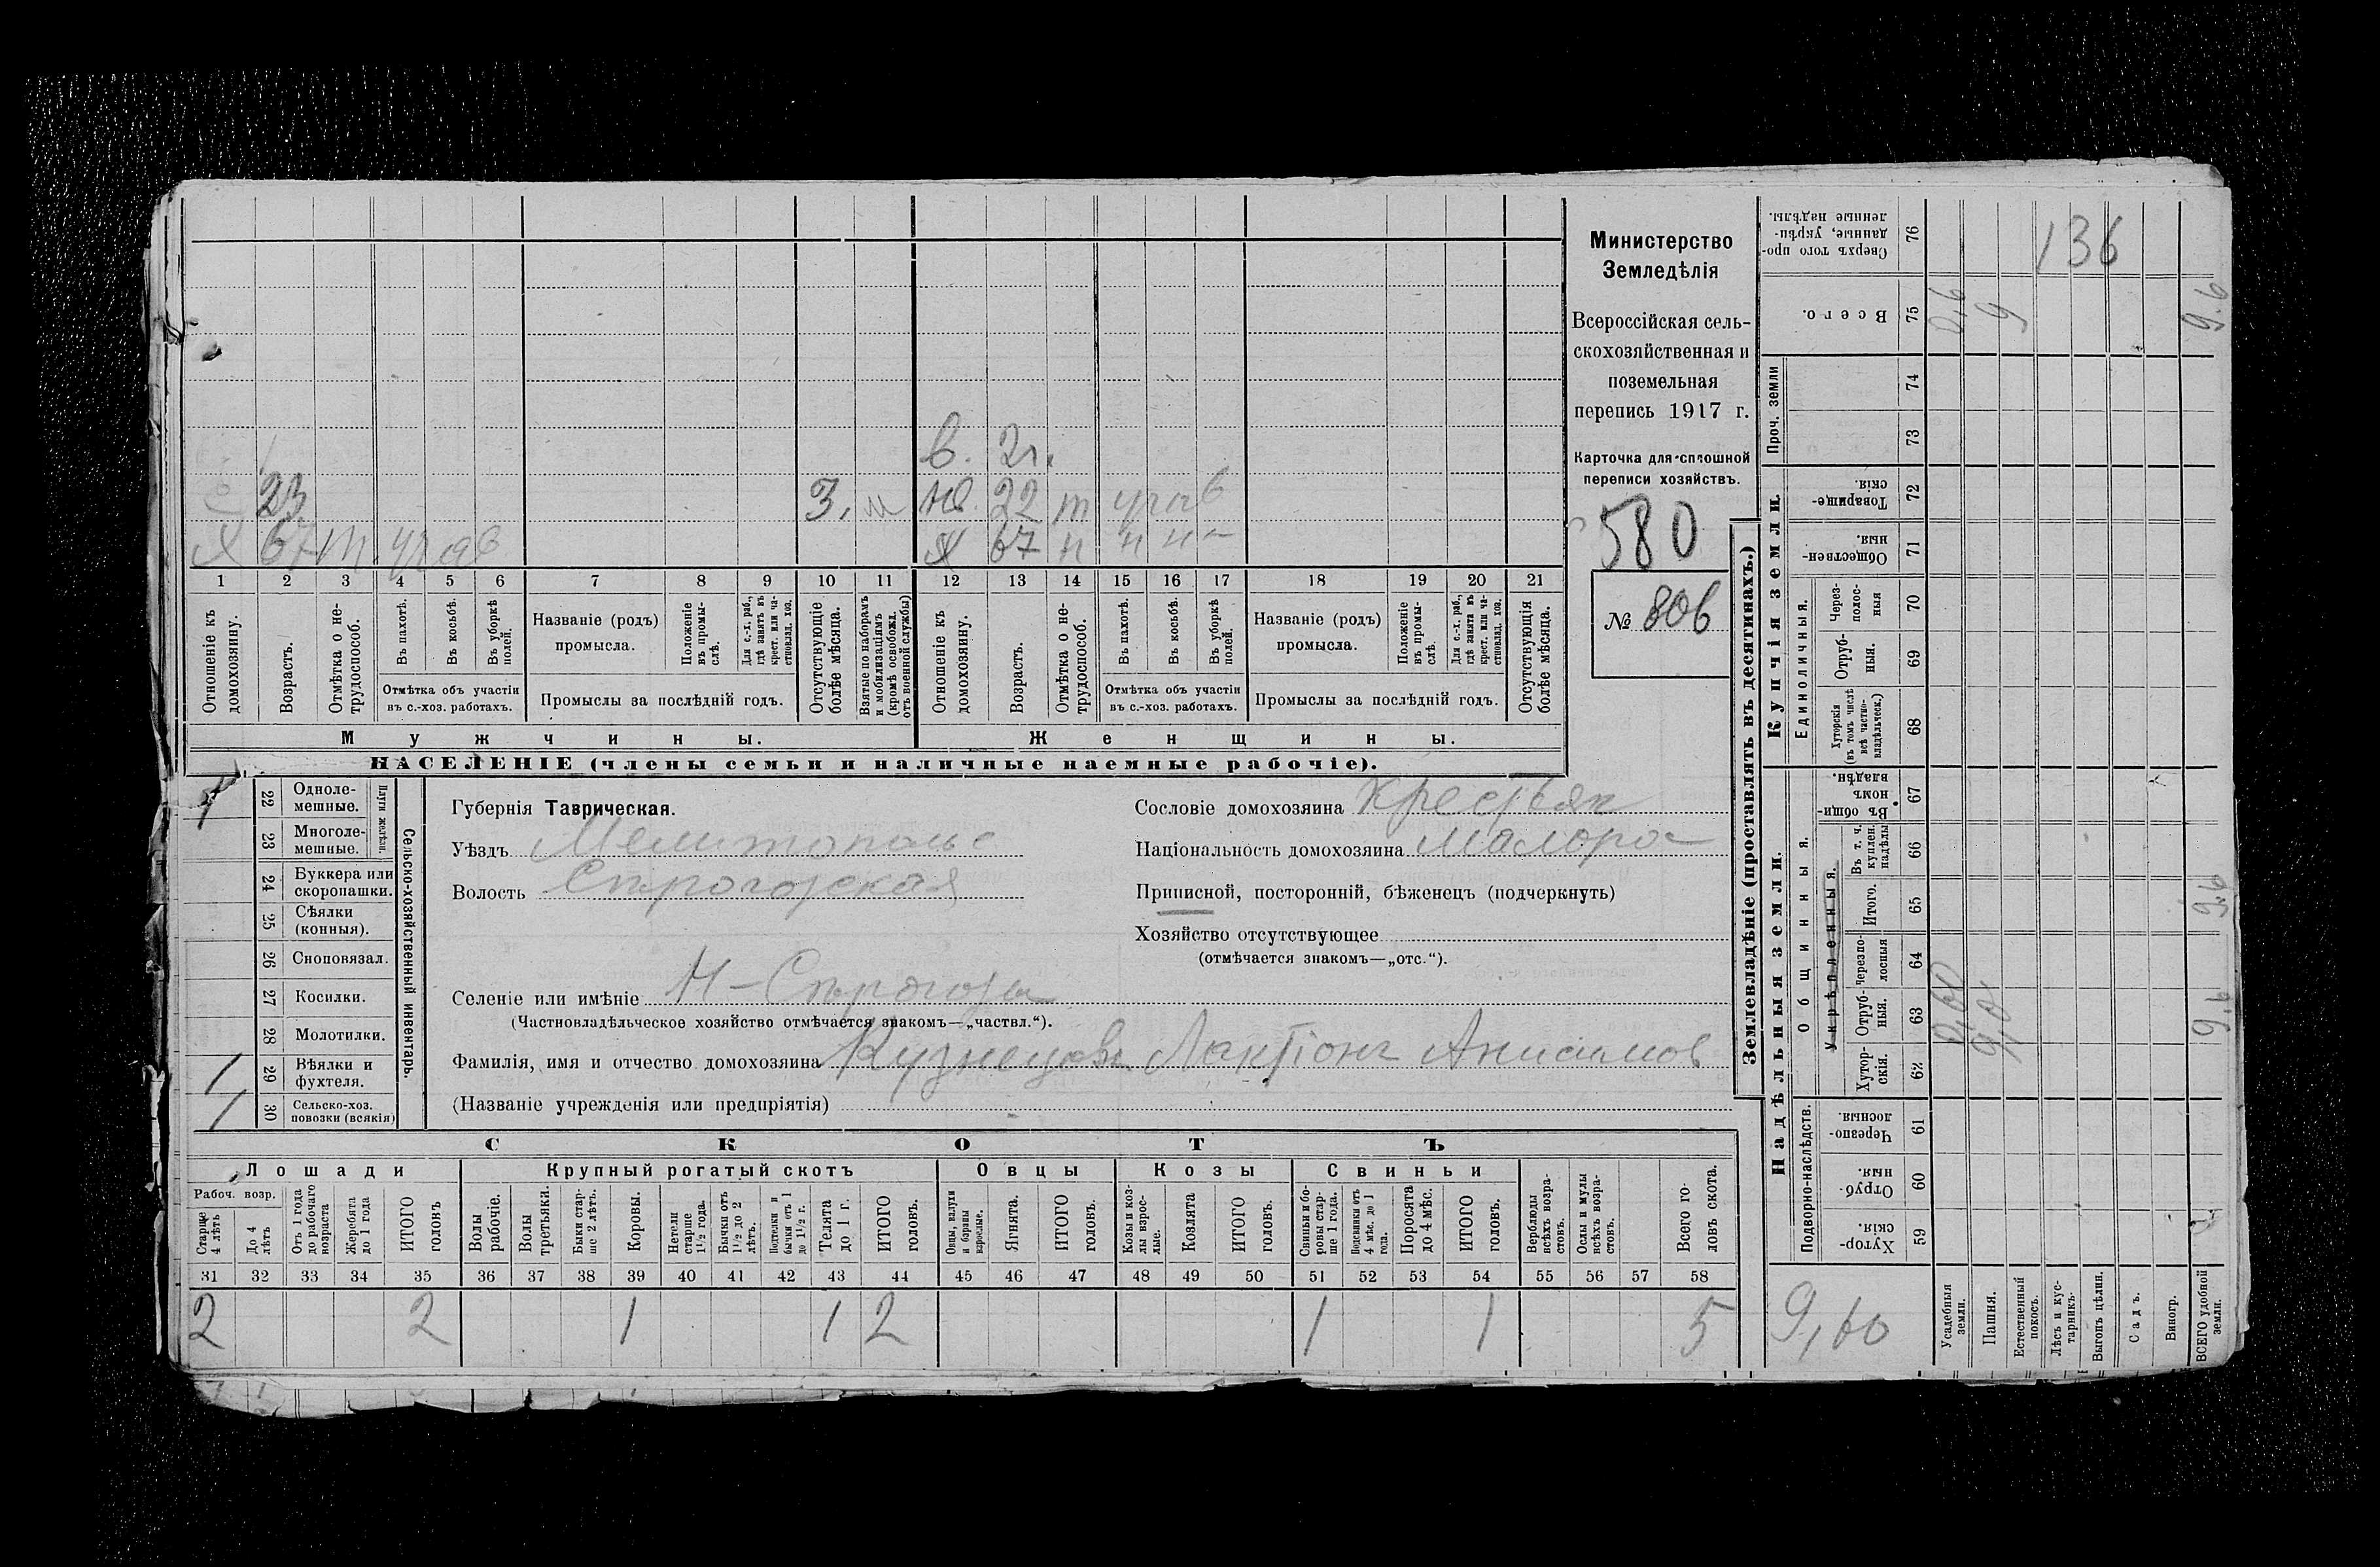 Министерство
Земледѣлія
Всероссійская сель-
скохозяйственная и
поземельная
перепись 1917 г.
Карточка для сплошной
переписи хозяйствъ.
580
№ 806
в. 2г.
23 3. м нв. 22 т участв
х 67 т участв х 67 н н н
1 2 3 4 5 6 7 8 9 10 11 12 13 14 15 16 17 18 19 20 21
Отношеніе къ домохозяину.
Возрастъ.
Отмѣтка о не-трудоспособ.
Въ пахотѣ.
Въ косьбѣ.
Въ уборкѣ полей.
Отмѣтка объ участіи
въ с.-хоз. работахъ.
Названіе (родъ)
промысла.
Положеніе въ промы-слѣ.
Для с.-х. раб., гдѣ занятъ въ крест. или ча-стновлад. хоз.
Промыслы за послѣдній годъ.
Отсутствующіе болѣе мѣсяца.
Взятые по наборамъ и мобилизаціямъ (кромѣ освобожд. отъ военной службы)
Отношеніе къ домохозяину.
Возрастъ.
Отмѣтка о не-трудоспособ.
Въ пахотѣ.
Въ косьбѣ.
Въ уборкѣ полей.
Отмѣтка объ участіи
въ с.-хоз. работахъ.
Названіе (родъ)
промысла.
Положеніе въ промы-слѣ.
Для с.-х. раб., гдѣ заняты въ крест. или ча-стновлад. хоз.
Промыслы за послѣдній годъ.
Отсутствующія болѣе мѣсяца.
Мужчины.
Женщины.
НАСЕЛЕНІЕ (члены семьи и наличные наемные рабочіе).
Сельско-хозяйственный инвентарь.
Плуги желѣзн.
1 22 Одноле-мешные.
23 Многоле-мешные.
24 Буккера или скоропашки.
25 Сѣялки (конныя).
26 Сноповязал.
27 Косилки.
28 Молотилки.
1 29 Вѣялки и фухтеля.
1 30 Сельско-хоз. повозки (всякія)
Губернія Таврическая.
Уѣздъ Мелитопольс
Волость Сѣрогозская
Селеніе или имѣніе Н-Сѣрогозы
(Частновладѣльческое хозяйство отмѣчается знакомъ—„частвл.“).
Фамилія, имя и отчество домохозяина Кузнецовъ Лактіонъ Анисимов
(Названіе учрежденія или предпріятія)
Сословіе домохозяина Крестьян
Національность домохозяина малоро
Приписной, посторонній, бѣженецъ (подчеркнуть)
Хозяйство отсутствующее
(отмѣчается знакомъ—„отс.“).
СКОТЪ
Лошади
Крупный рогатый скотъ
Овцы
Козы
Свиньи
Рабоч. возр.
Старше 4 лѣтъ
До 4 лѣтъ
Отъ 1 года до рабочаго возраста
Жеребята до 1 года
ИТОГО головъ
Волы рабочіе.
Волы третьяки.
Быки стар-ше 2 лѣтъ.
Коровы.
Нетели старше 1½ года.
Бычки отъ 1½ до 2 лѣтъ.
Подтелки и бычки отъ 1 до 1½ г.
Телята до 1 г.
ИТОГО головъ.
Овцы, валухи и бараны взрослые.
Ягнята.
ИТОГО головъ.
Козы и коз-лы взрос-лые.
Козлята
ИТОГО головъ.
Свиньи и бо-ровы стар-ше 1 года.
Подсвинки отъ 4 мѣс. до 1 года.
Поросята до 4 мѣс.
ИТОГО головъ.
Верблюды всѣхъ возра-стовъ.
Ослы и мулы всѣхъ возра-стовъ.
Всего го-ловъ скота.
31 32 33 34 35 36 37 38 39 40 41 42 43 44 45 46 47 48 49 50 51 52 53 54 55 56 57 58
2 2 1 1 2 1 1 5
Землевладѣніе (проставлять въ десятинахъ.)
Купчія земли.
Надѣльныя земли.
Проч. земли
Единоличныя.
Общинныя.
Укрѣпленныя.
Подворно-наслѣдств.
Сверхъ того про-данные, укрѣп-ленные надѣлы. 76 136
Всего. 75 0,6 9 9.6
74
73
Товарище-скія. 72
Обществен-ныя. 71
Через-полос-ныя 70
Отруб-ныя. 69
Хуторскія (въ томъ числѣ всѣ частно-владѣльческ.) 68
Въ общин-номъ владѣн. 67
Въ т. ч. куплен. надѣлы 66
Итого. 65 9,6
Черезпо-лосныя 64
Отруб-ныя. 63 0,60 9,0 9,6
Хутор-скія. 62
Черезпо-лосныя 61
Отруб-ныя. 60
Хутор-скія. 59
9,60
Усадебныя земли.
Пашня.
Естественный покосъ.
Лѣсъ и кус-тарникъ.
Выгонъ цѣлин.
Садъ.
Виногр.
ВСЕГО удобной земли.